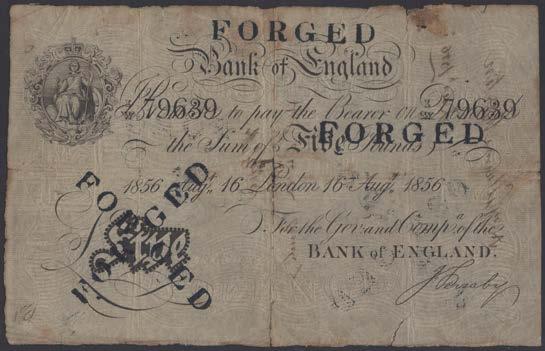 FORGED
Bank of England
79639 to pay the Bearer on 79639
the Sum of Five Pounds
FORGED
1856 Augt. 16 London 16 Augt. 1856
For the Gov.r and Comp.a of the
BANK of ENGLAND.
FORGED
Five
FORGED